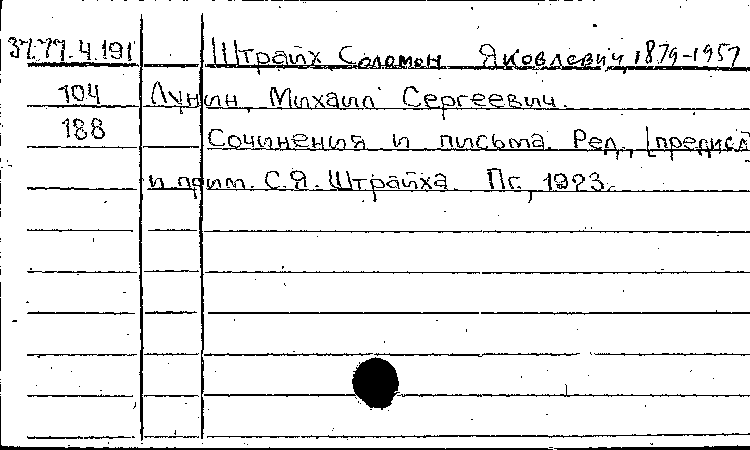 37.77.4.191 Штрайх, Соломон Яковлевич, 1879-1957
104 Лунин, Михаил Сергеевич.
188 Сочинения и письма. Ред., [предисл
и прим. С.Я. Штрайха. Пг., 1923.